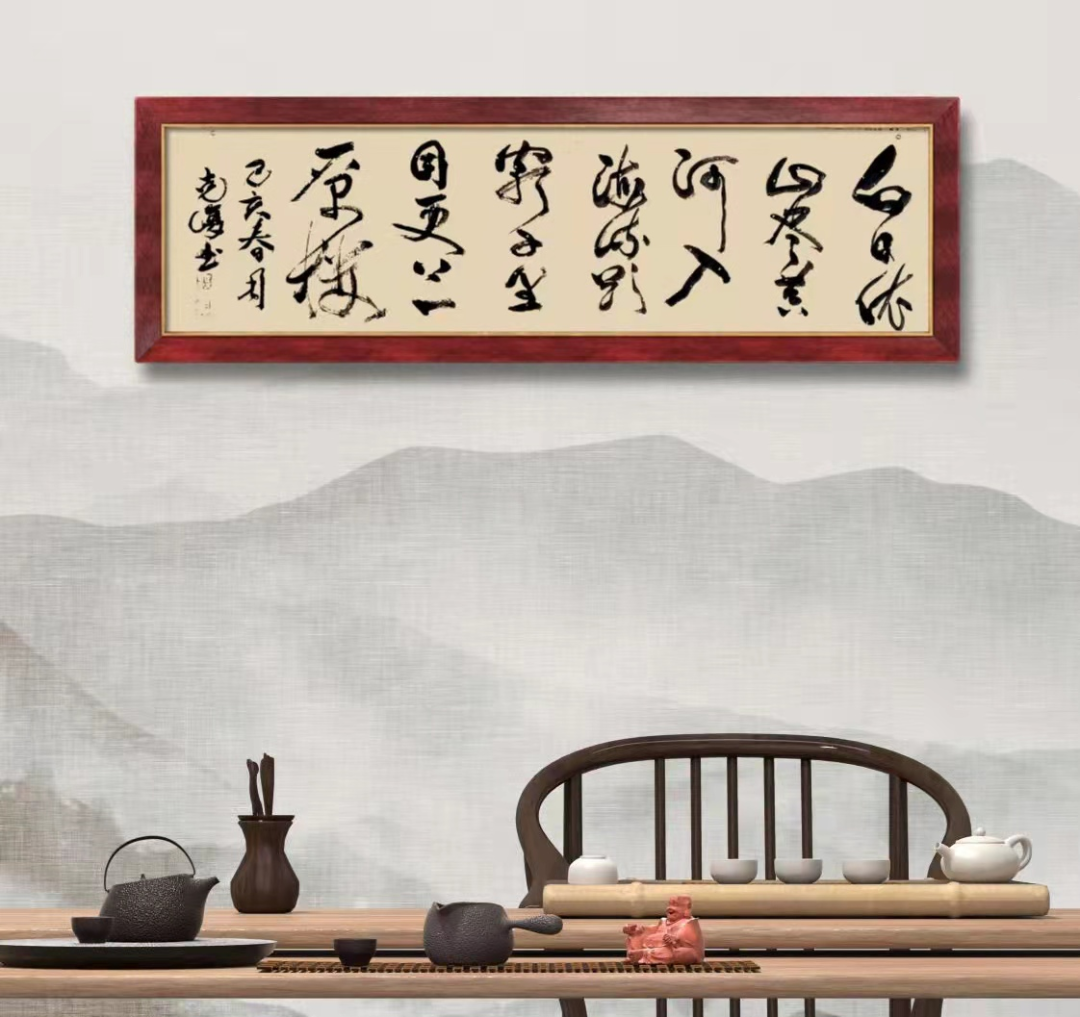 白日依
山尽黄
河入
海流欲
穷千里
目更上一
层楼
己亥春周
克 书